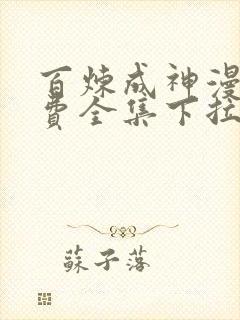 百炼成神漫
费全集下拉
蘇子落